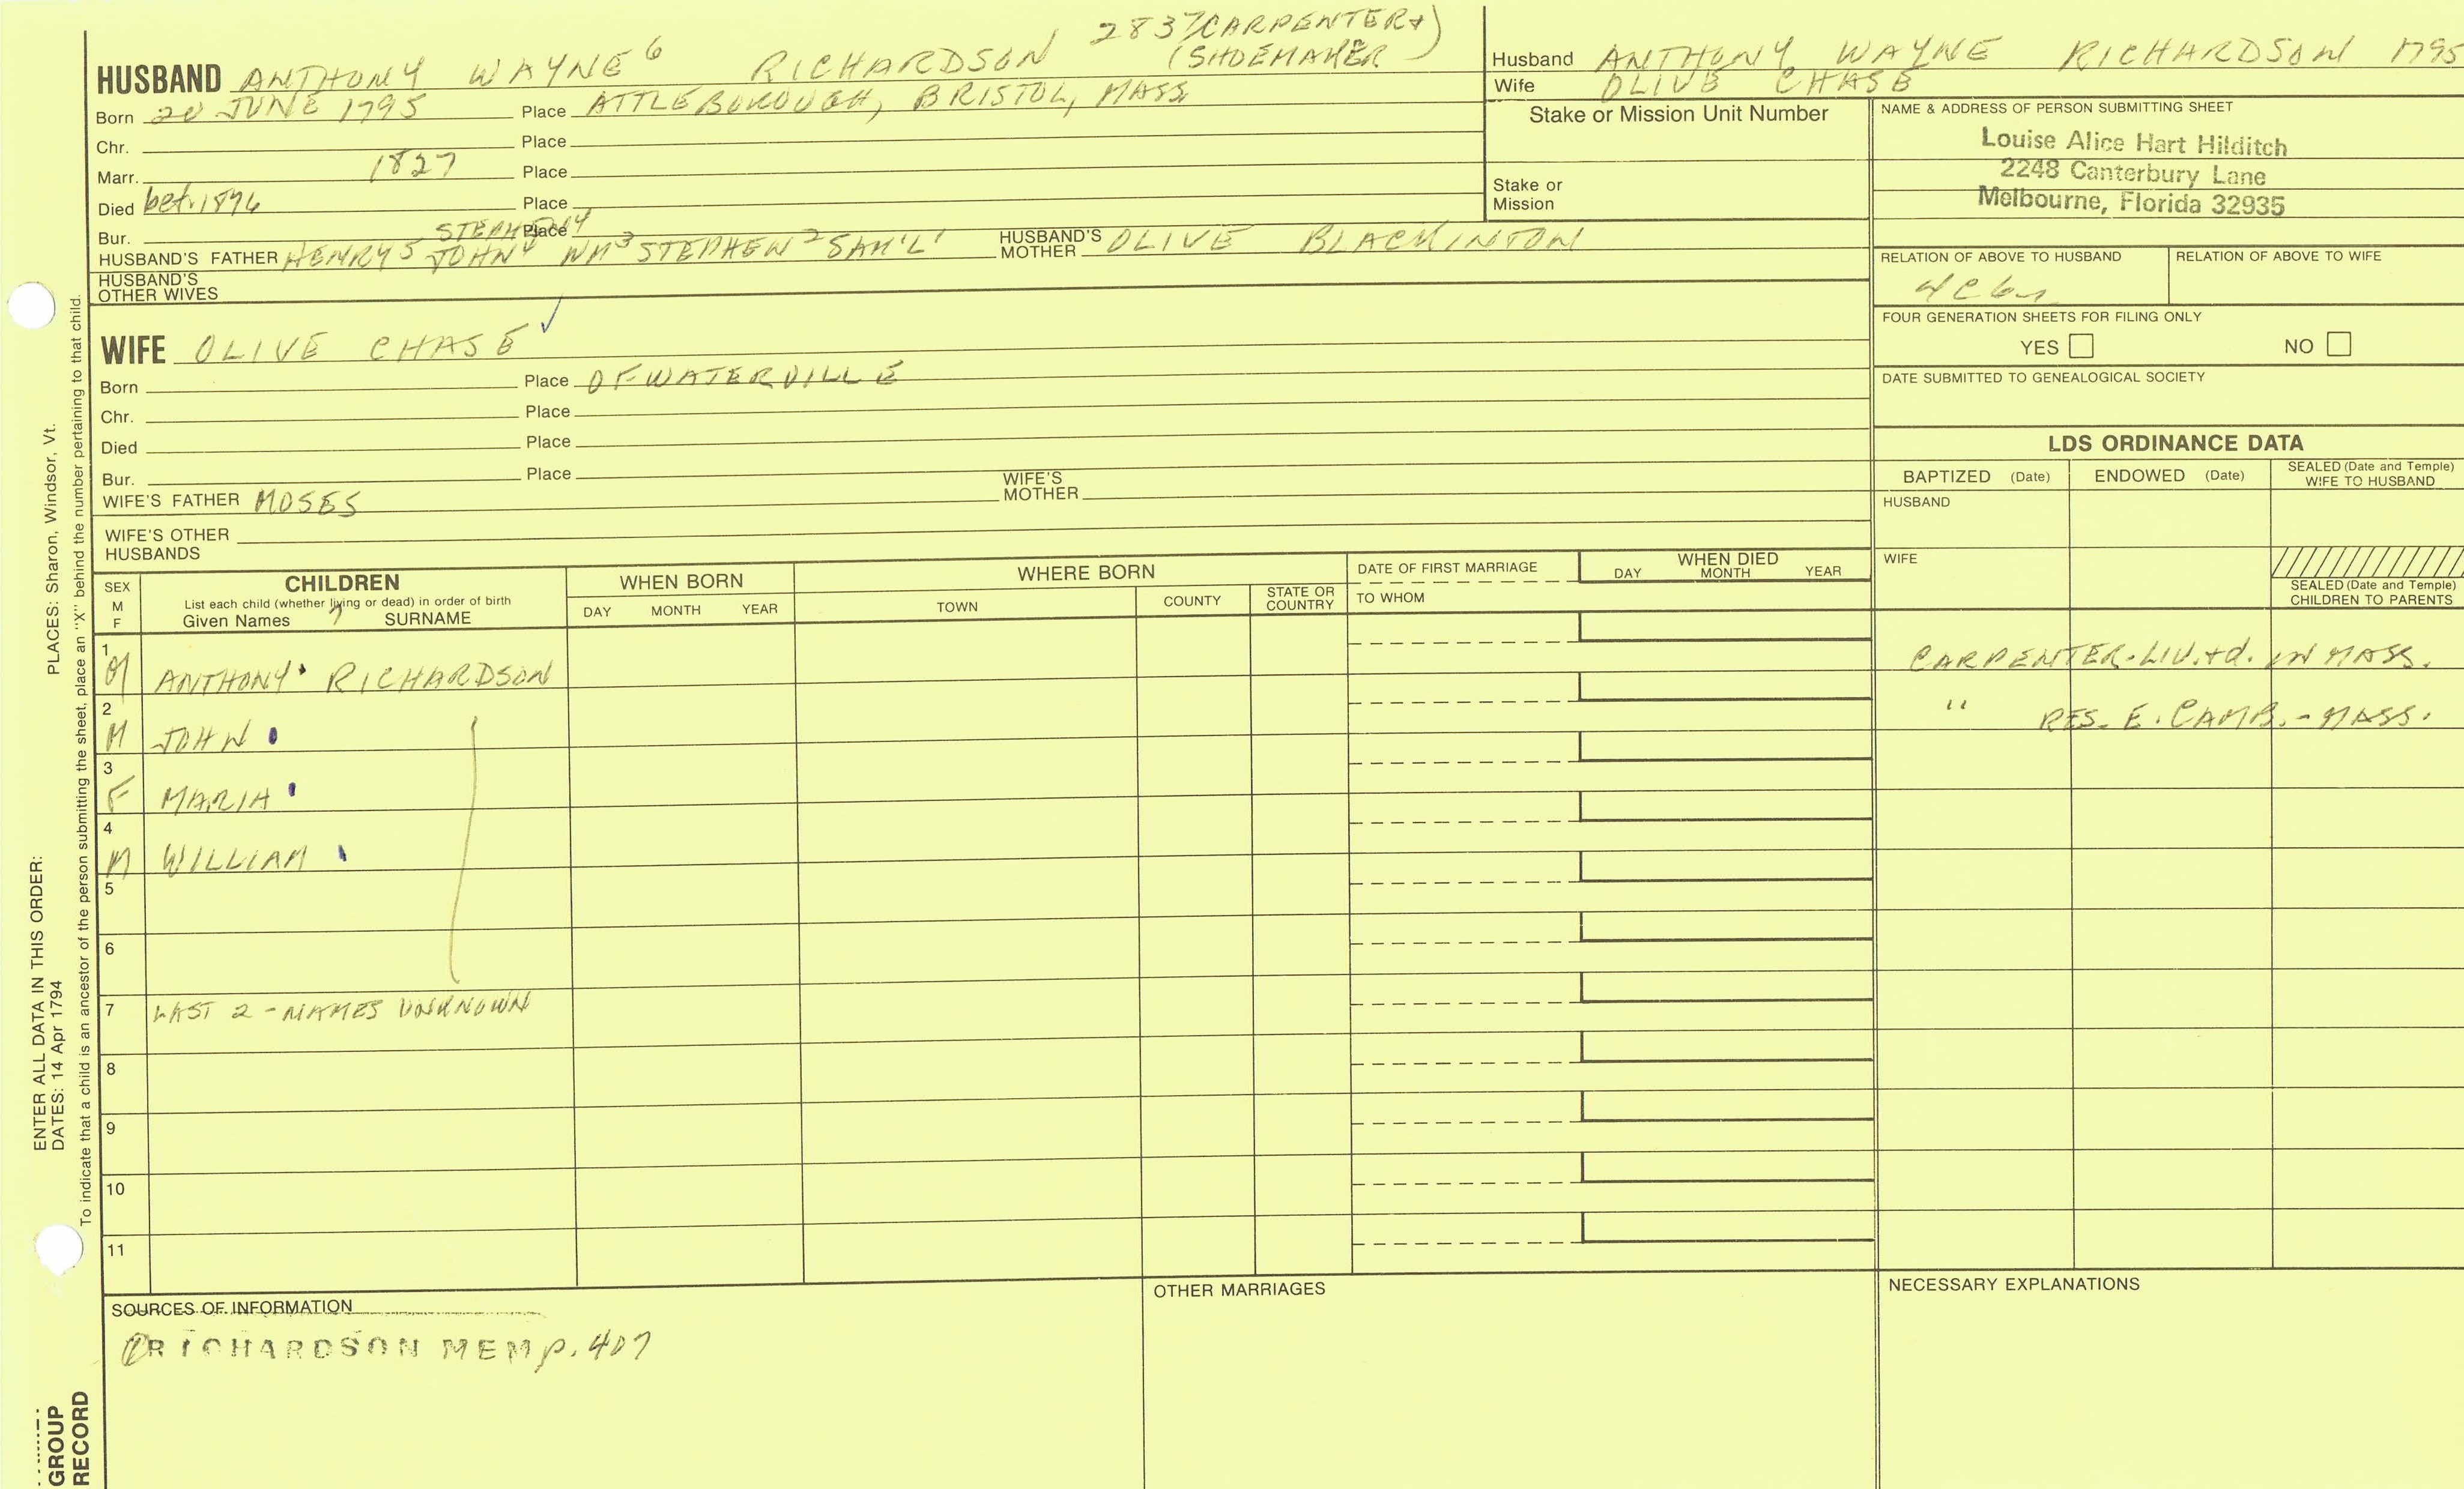 2837 CARPENTER &
HUSBAND ANTHONY WAYNE⁶ RICHARDSON (SHOEMAKER)
Born 20 JUNE 1795 Place ATTLEBOROUGH, BRISTOL, MASS
Chr. Place
Marr. 1827 Place
Died bef. 1876 Place
Bur. Place
STEPHEN⁴
HUSBAND'S FATHER HENRY⁵ JOHN⁴ WM³ STEPHEN² SAM'L¹ HUSBAND'S MOTHER OLIVE BLACKINTON
HUSBAND'S OTHER WIVES
WIFE OLIVE CHASE ✓
Born Place OF WATERVILLE
Chr. Place
Died Place
Bur. Place
WIFE'S FATHER MOSES WIFE'S MOTHER
WIFE'S OTHER HUSBANDS
Husband ANTHONY WAYNE RICHARDSON 1795
Wife OLIVE CHASE
Stake or Mission Unit Number
Stake or
Mission
NAME & ADDRESS OF PERSON SUBMITTING SHEET
Louise Alice Hart Hilditch
2248 Canterbury Lane
Melbourne, Florida 32935
RELATION OF ABOVE TO HUSBAND RELATION OF ABOVE TO WIFE
FOUR GENERATION SHEETS FOR FILING ONLY
YES NO
DATE SUBMITTED TO GENEALOGICAL SOCIETY
LDS ORDINANCE DATA
BAPTIZED (Date) ENDOWED (Date) SEALED (Date and Temple) WIFE TO HUSBAND
HUSBAND
WIFE
SEALED (Date and Temple) CHILDREN TO PARENTS
SEX M F
CHILDREN
List each child (whether living or dead) in order of birth
Given Names SURNAME
WHEN BORN
DAY MONTH YEAR
WHERE BORN
TOWN COUNTY STATE OR COUNTRY
DATE OF FIRST MARRIAGE
TO WHOM
WHEN DIED
DAY MONTH YEAR
1 M ANTHONY RICHARDSON CARPENTER-LIV. & d. IN MASS.
2 M JOHN " RES. E. CAMB.-MASS.
3 F MARIA
4 M WILLIAM
5
6
7 LAST 2 - NAMES UNKNOWN
8
9
10
11
SOURCES OF INFORMATION
RICHARDSON MEM p. 407
OTHER MARRIAGES
NECESSARY EXPLANATIONS
ENTER ALL DATA IN THIS ORDER:
DATES: 14 Apr 1794
PLACES: Sharon, Windsor, Vt.
To indicate that a child is an ancestor of the person submitting the sheet, place an "X" behind the number pertaining to that child.
GROUP
RECORD